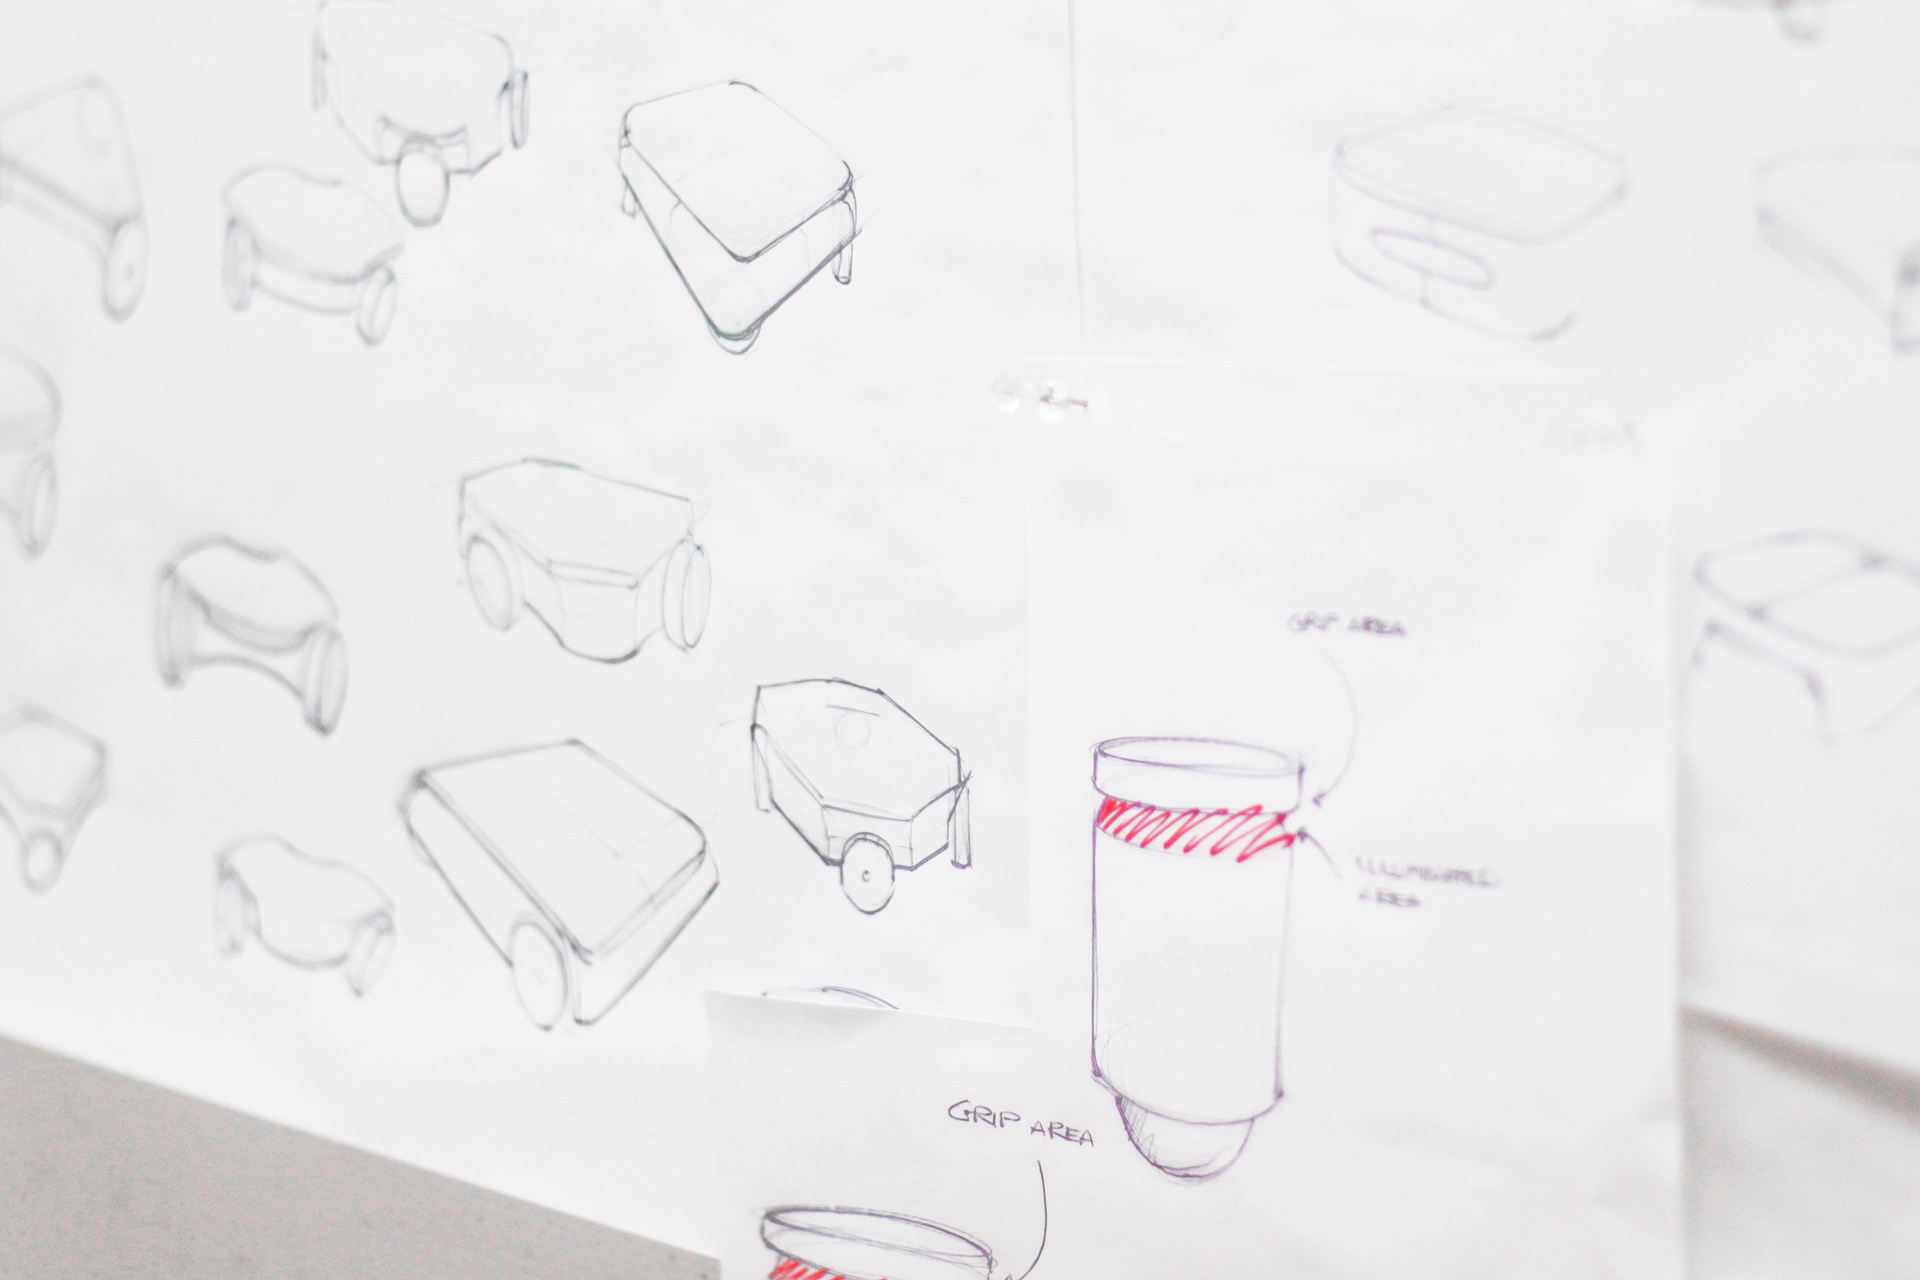 GRIP AREA
ILLUMINATED
AREA
GRIP AREA